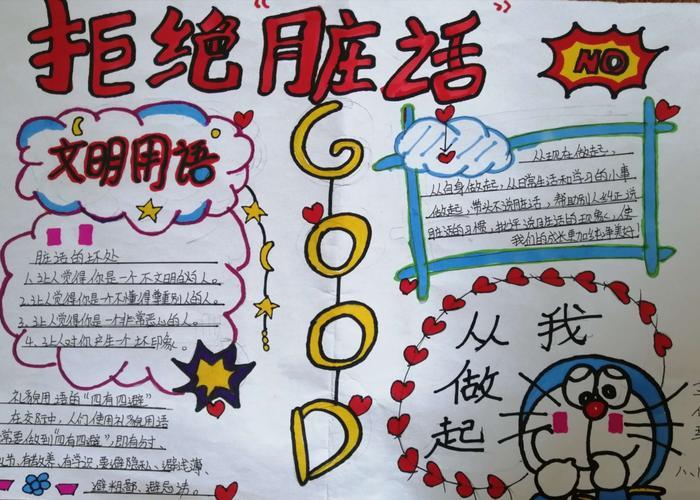 拒绝“脏话”
NO
文明用语
脏话的坏处
1.让人觉得你是一个不文明的人。
2.让人觉得你是一个不懂得尊重别人的人。
3.让人觉得你是一个非常恶心的人。
4.让人对你产生一个坏印象。
礼貌用语的“四有四避”
在交际中，人们使用礼貌用语
常要做到“四有四避”，即有分寸、
礼节、有教养、有学识，要避隐私、避浅薄、
避粗鄙、避忌讳。
GOOD
从现在做起，
从自身做起，从日常生活和学习的小事
做起，带头不说脏话，帮助别人纠正说
脏话的习惯，批评说脏话的现象，使
我们的成长更加纯净美好！
从我
做
起